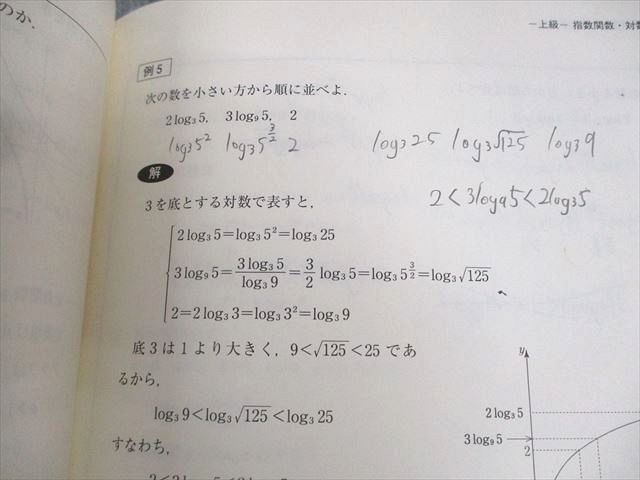 のか.
−上級− 指数関数・対数
例5
次の数を小さい方から順に並べよ.
2log₃5, 3log₉5, 2
log₃5² log₃5^{3/2} 2
log₃25 log₃√125 log₃9
2<3log₉5<2log₃5
解
3を底とする対数で表すと,
2log₃5=log₃5²=log₃25
3log₉5=3log₃5/log₃9=3/2 log₃5=log₃5^{3/2}=log₃√125
2=2log₃3=log₃3²=log₃9
底3は1より大きく, 9<√125<25であ
るから,
log₃9<log₃√125<log₃25
すなわち,
y
2log₃5
3log₉5
2